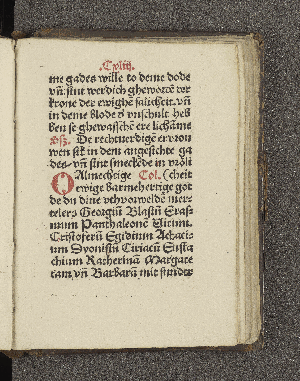 .Cxliij.
me gades wille to deme dode
vñ sint werdich ghewordē der
krone der ewighē salicheit vñ
in deme blode d' vnschult heb
ben se ghewasschē ere lichame
De rechtuerdigē vrou
wen sik in dem angesichte ga
des vñ sint smeckēde in vroli
O Almechtige Col. cheit
ewige barmehertige got
de du dine vthvorweldē mer
telere Georgiū Blasiū Eras
mum Panthaleonē Uitum
Cristoferū Egidium Achaciu
um Dyonisiū Ciriacū Eusta
chium Katherinā Margare
tam vñ Barbarā mit sunder